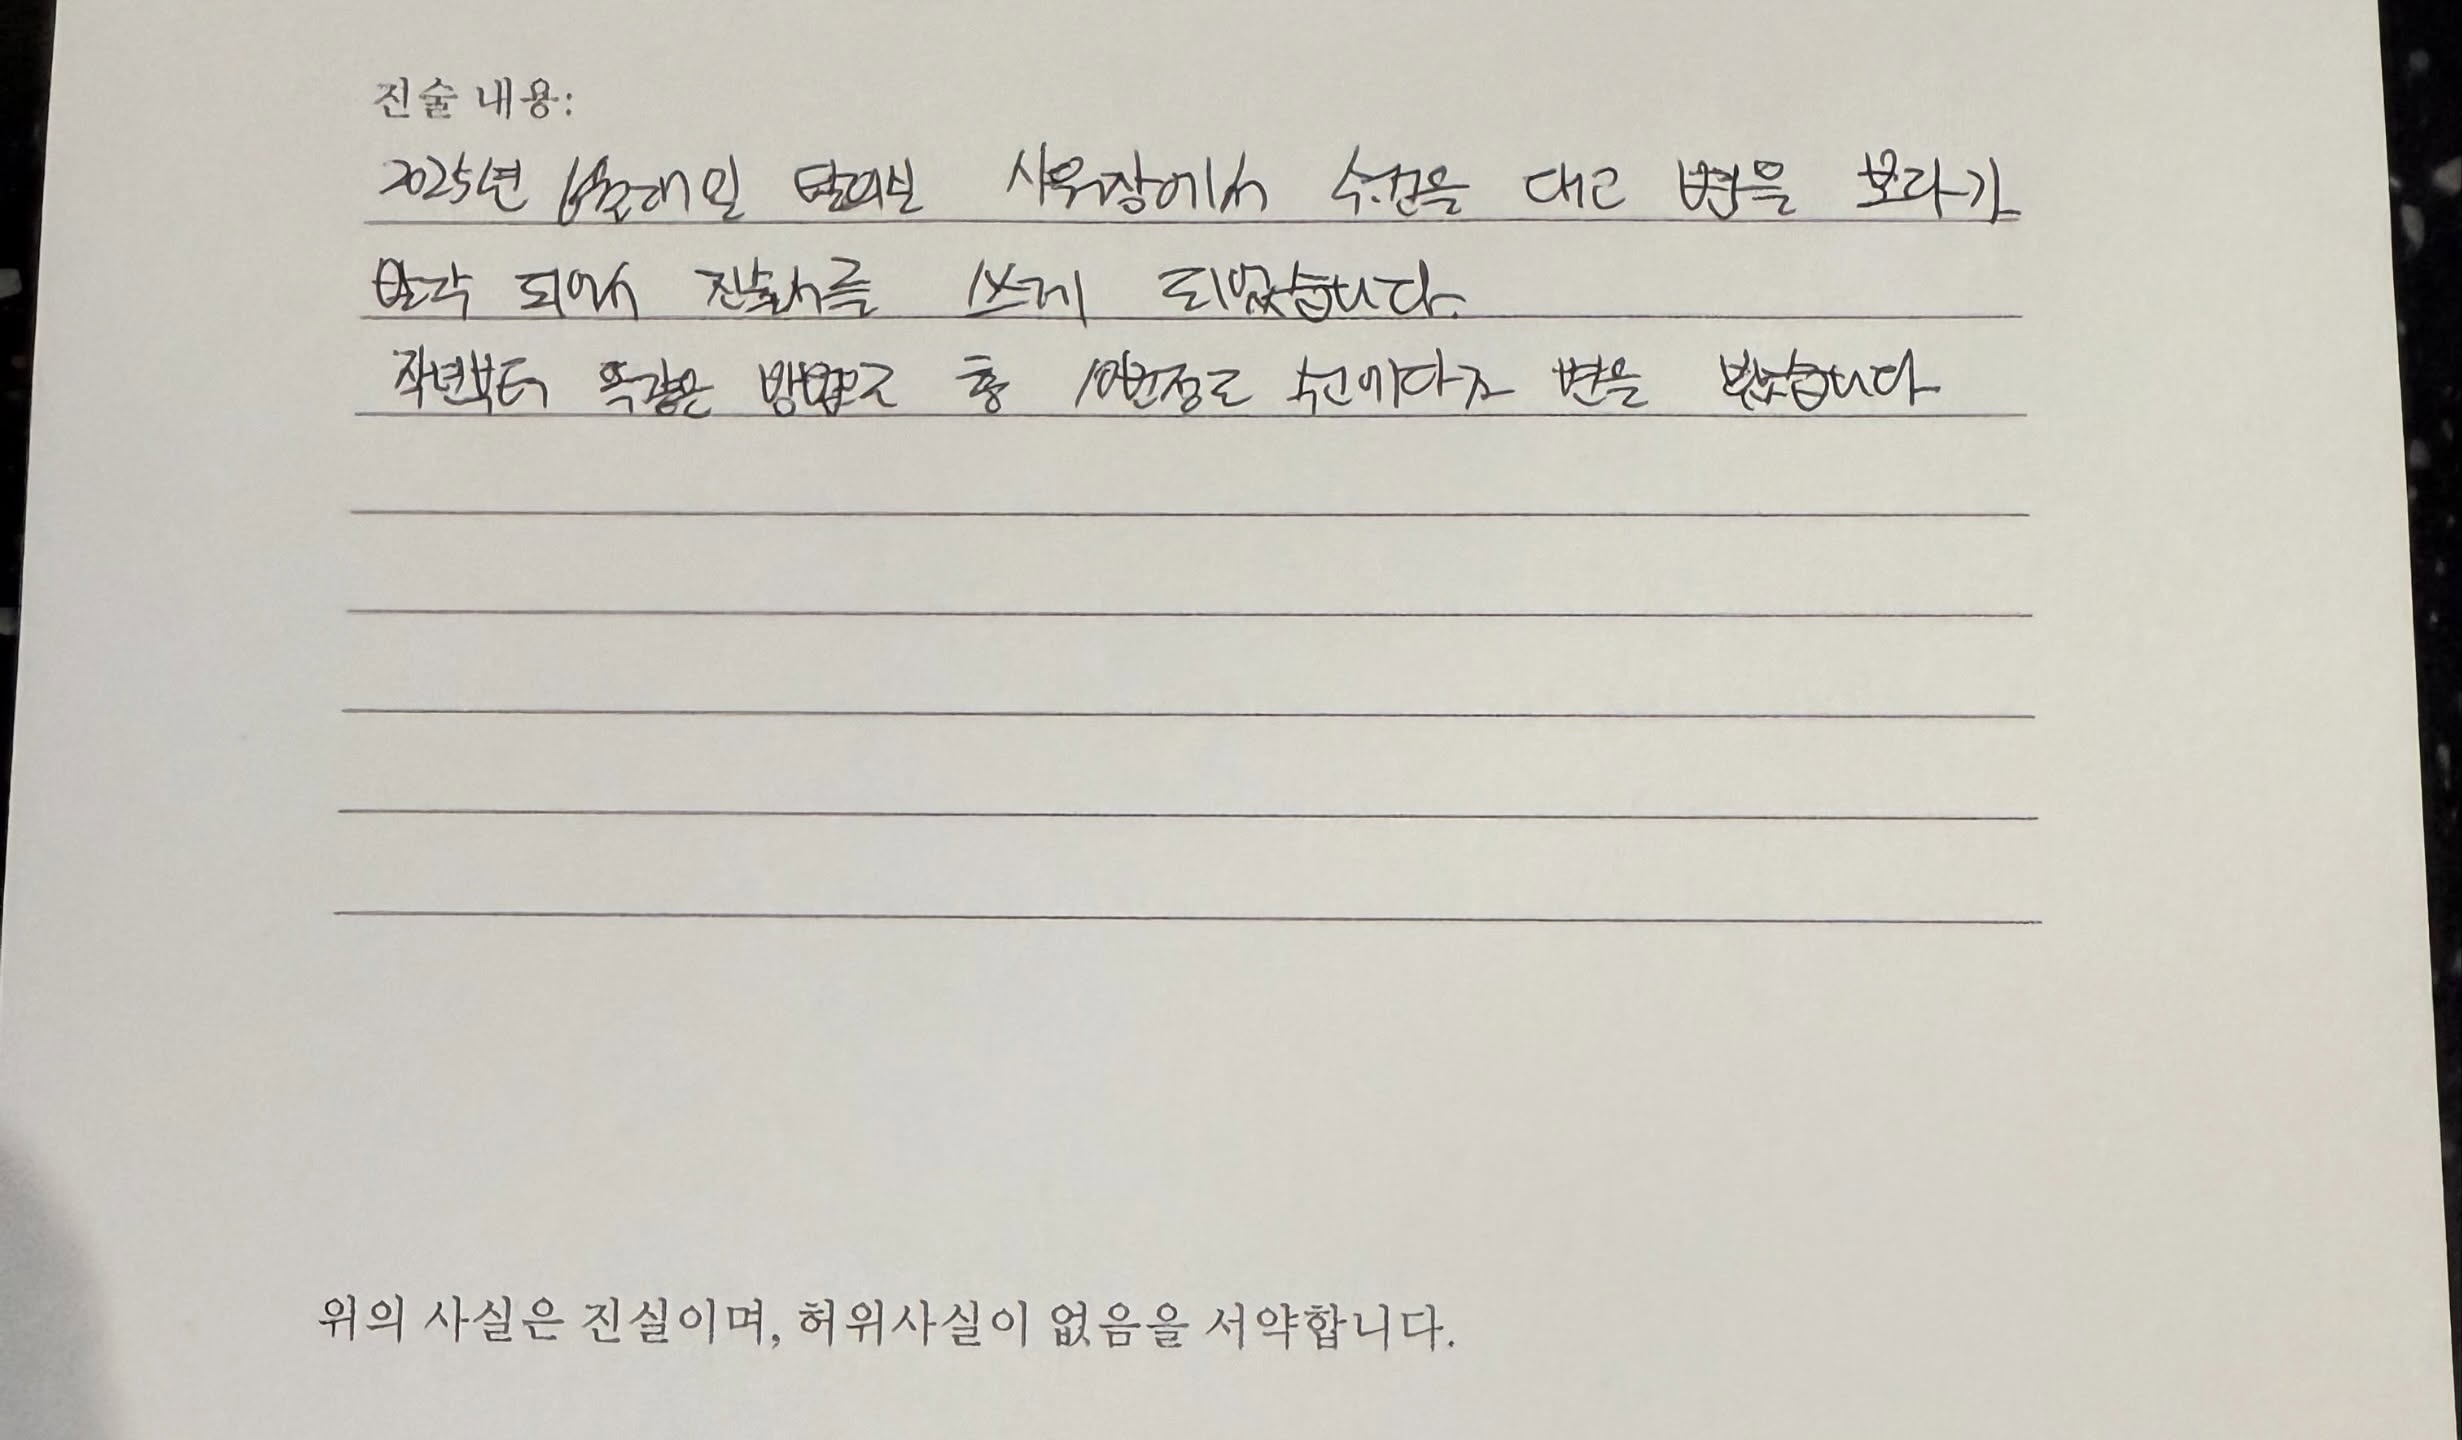 진술 내용:
2025년 사워장에서 수건을 대고 변을 보다가
발각 되어서 진술서를 쓰게 되었습니다.
작년부터 똑같은 방법으로 총 10번정도 수건에다가 변을 봤습니다
위의 사실은 진실이며, 허위사실이 없음을 서약합니다.